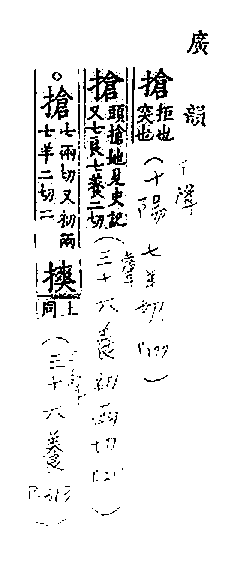 廣韻
搶 拒也突也(十陽 七羊切
搶 頭搶地見史記又七良七養二切(三十六養 初兩切
搶 七兩切又初兩七羊二切二 摤 上同(三十六養